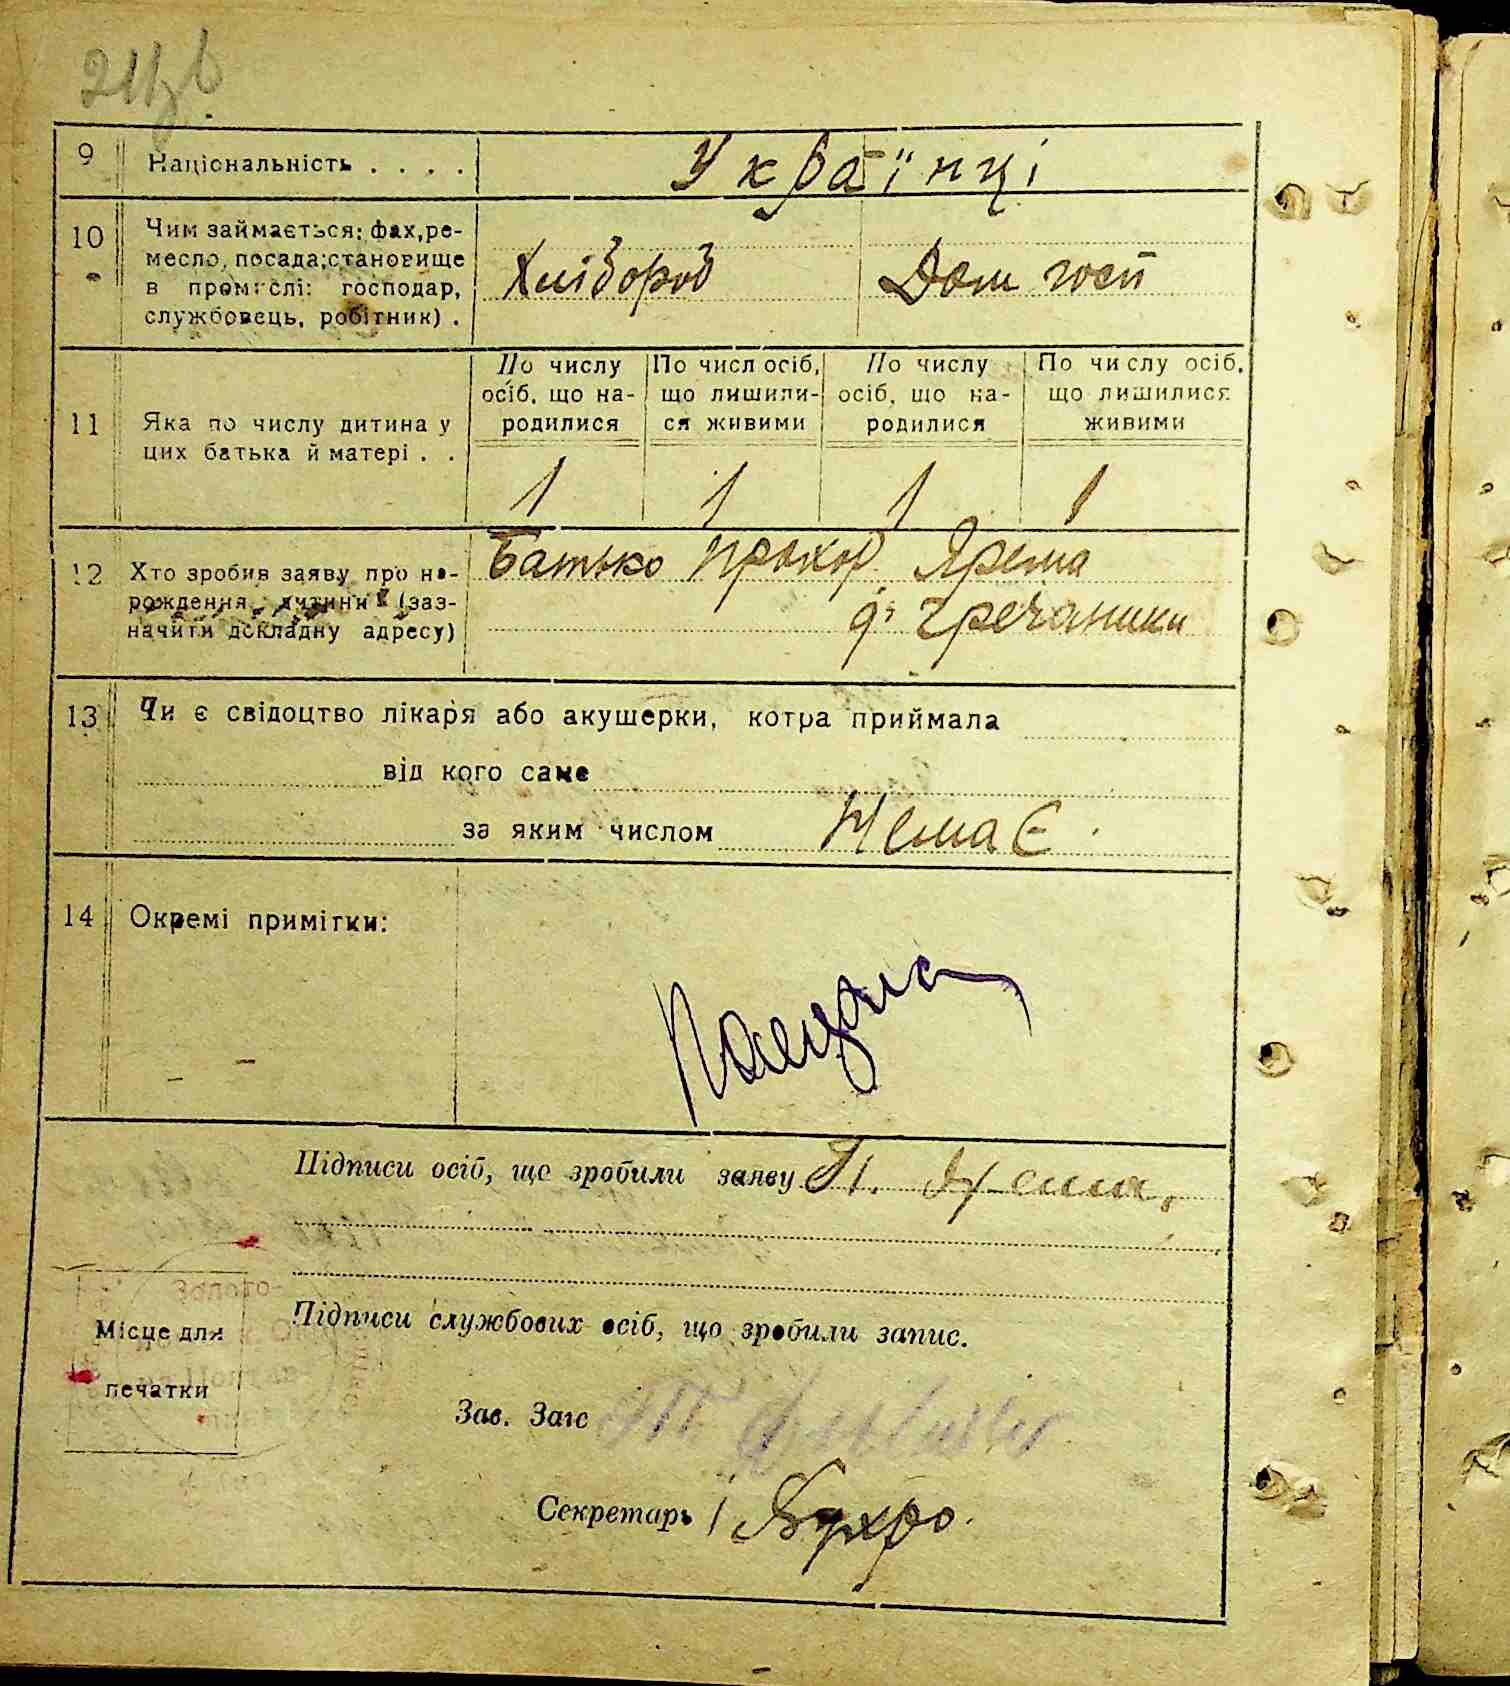 9 Національність . . . . Українці
10 Чим займається: фах, ре-
месло, посада; становище
в промислі: господар,
службовець, робітник) .
Хлібороб Дом госп
11 Яка по числу дитина у
цих батька й матері . .
По числу осіб, що на-родилися
По числ осіб, що лишили-ся живими
По числу осіб, що на-родилися
По числу осіб, що лишилися живими
1 1 1 1
12 Хто зробив заяву про на-
рождення дитини (заз-
начити докладну адресу)
Батько Прохор Ярема
Гречаники
13 Чи є свідоцтво лікаря або акушерки, котра приймала
від кого саме
за яким числом Немає
14 Окремі примітки:
Підписи осіб, що зробили заяву П. Ярема,
Підписи службових осіб, що зробили запис.
Місце для
печатки
Зав. Загс
Секретарь